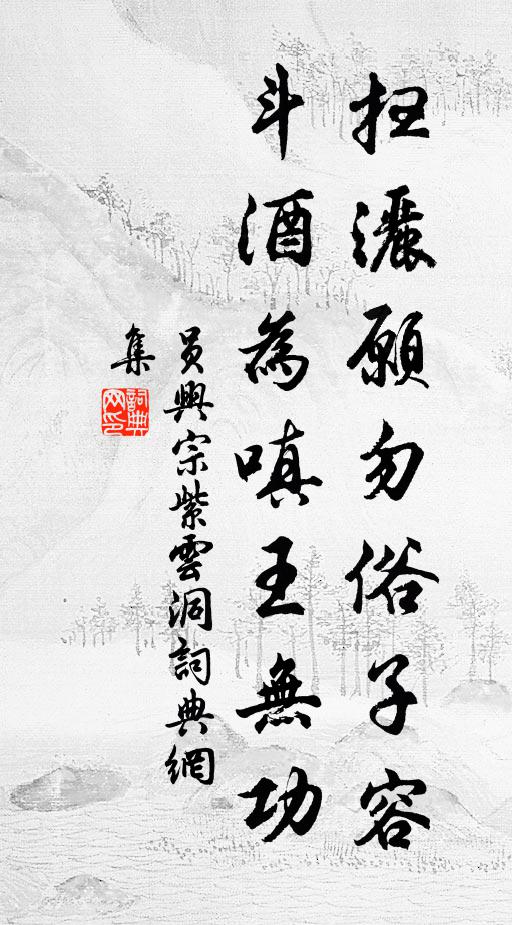 扫灑願勿俗子容
斗酒為嗔王無功
員興宗紫雲洞詞典網
集
詞典
网印